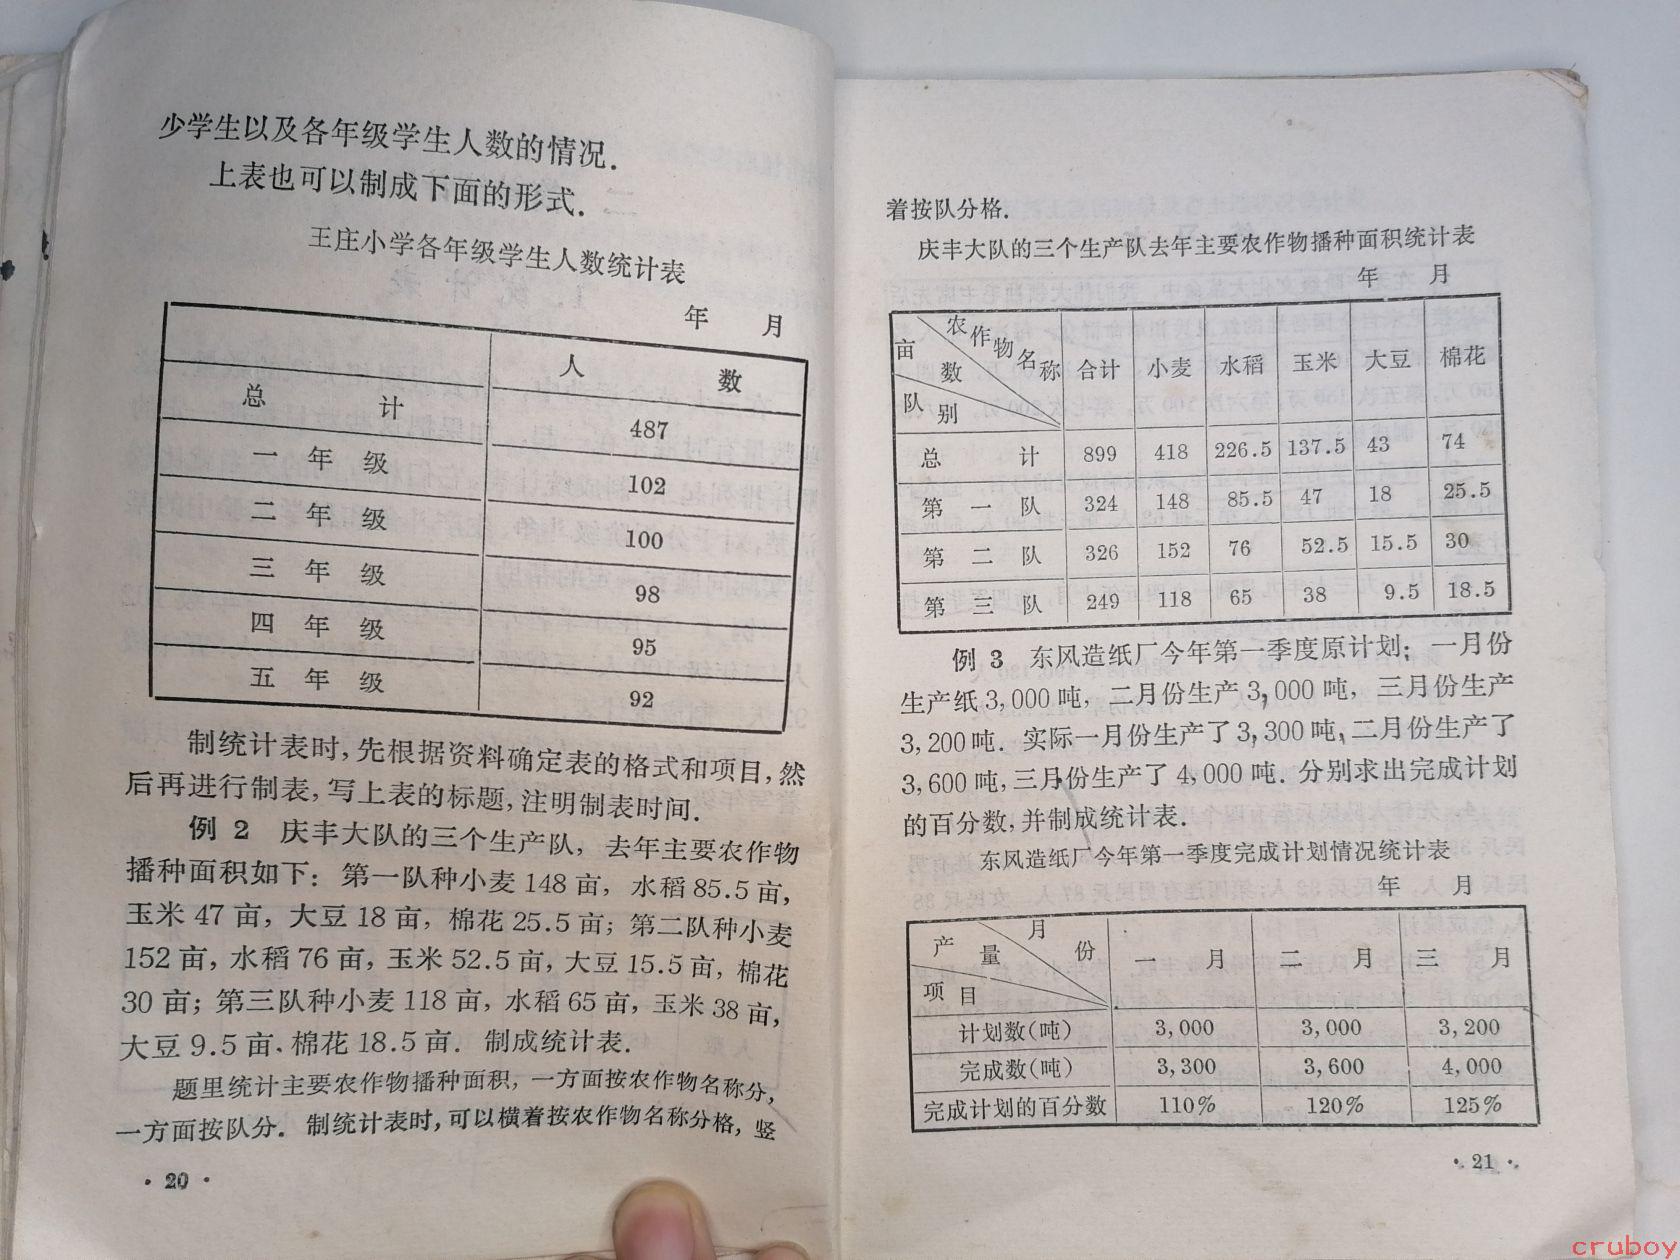 少学生以及各年级学生人数的情况.
上表也可以制成下面的形式.
王庄小学各年级学生人数统计表
年 月
人 数
总 计 487
一 年 级 102
二 年 级 100
三 年 级 98
四 年 级 95
五 年 级 92
制统计表时,先根据资料确定表的格式和项目,然
后再进行制表,写上表的标题,注明制表时间.
例 2 庆丰大队的三个生产队, 去年主要农作物
播种面积如下: 第一队种小麦 148 亩, 水稻 85.5 亩,
玉米 47 亩, 大豆 18 亩, 棉花 25.5 亩; 第二队种小麦
152 亩, 水稻 76 亩, 玉米 52.5 亩, 大豆 15.5 亩, 棉花
30 亩; 第三队种小麦 118 亩, 水稻 65 亩, 玉米 38 亩,
大豆 9.5 亩. 棉花 18.5 亩. 制成统计表.
题里统计主要农作物播种面积, 一方面按农作物名称分,
一方面按队分. 制统计表时, 可以横着按农作物名称分格, 竖
· 20 ·
着按队分格.
庆丰大队的三个生产队去年主要农作物播种面积统计表
年 月
农作物名称 亩数 队别 合计 小麦 水稻 玉米 大豆 棉花
总 计 899 418 226.5 137.5 43 74
第 一 队 324 148 85.5 47 18 25.5
第 二 队 326 152 76 52.5 15.5 30
第 三 队 249 118 65 38 9.5 18.5
例 3 东风造纸厂今年第一季度原计划; 一月份
生产纸 3,000 吨, 二月份生产 3,000 吨, 三月份生产
3,200 吨. 实际一月份生产了 3,300 吨, 二月份生产了
3,600 吨, 三月份生产了 4,000 吨. 分别求出完成计划
的百分数, 并制成统计表.
东风造纸厂今年第一季度完成计划情况统计表
年 月
月份 产量 项目 一 月 二 月 三 月
计划数(吨) 3,000 3,000 3,200
完成数(吨) 3,300 3,600 4,000
完成计划的百分数 110% 120% 125%
· 21 ·
cruboy